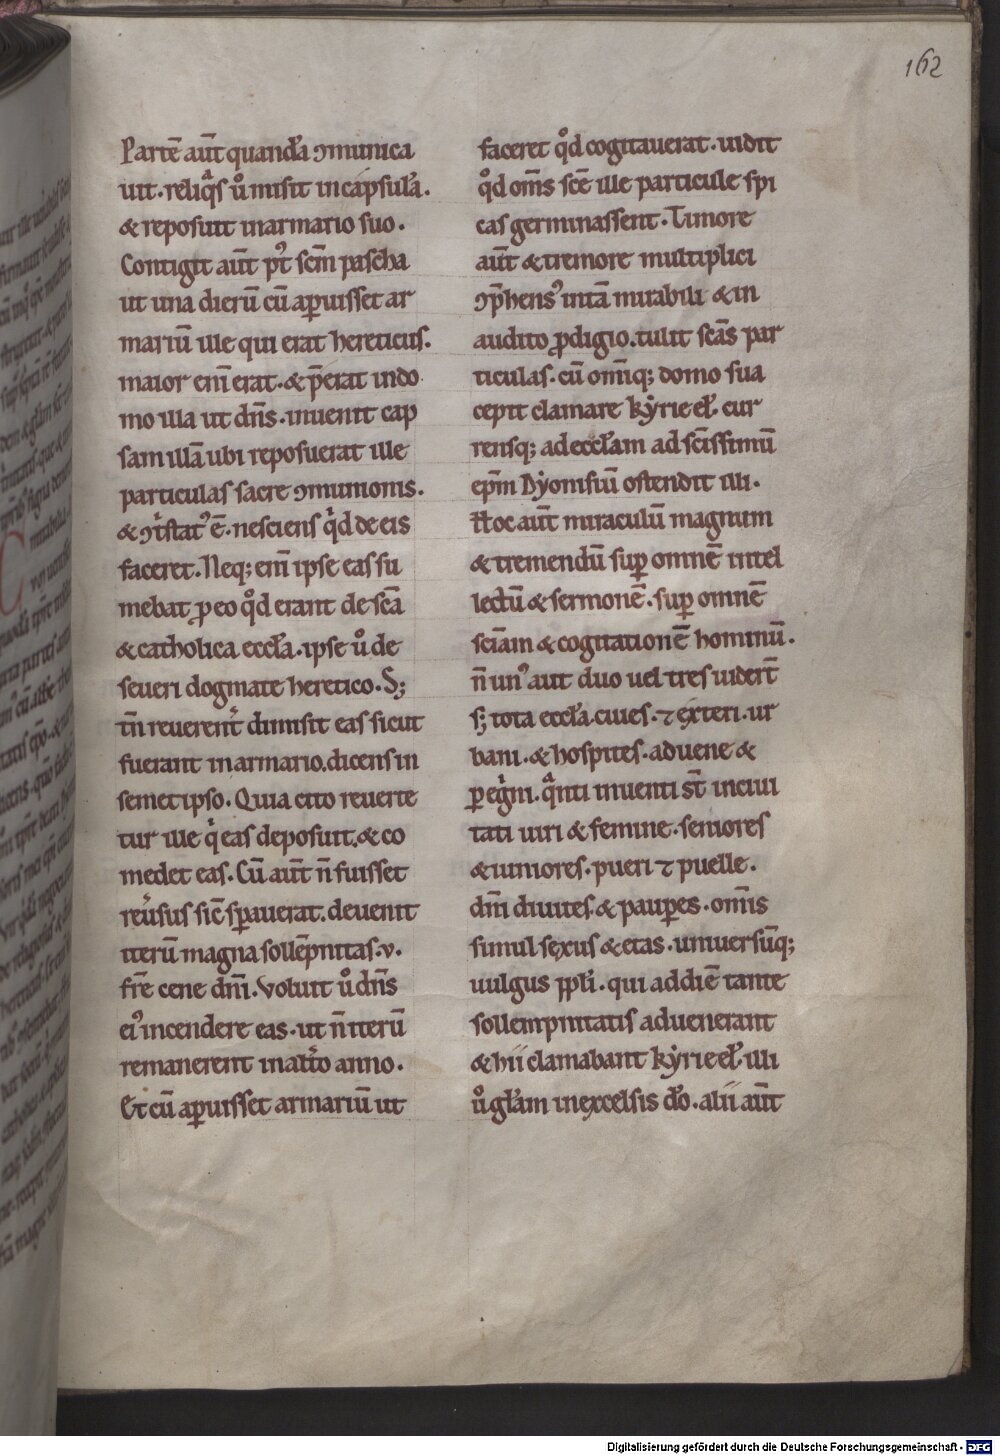 162
Partē aūt quandā ↄmunica
uit. reliq̄s ů misit in capsulā.
& reposuit in armario suo.
Contigit aūt pꝰt scm̄ pascha
ut una dierū cū aꝑuisset ar
mariū ille qui erat hereticus.
maior enī erat. & p̄erat in do
mo illa ut dn̄s. inuenit cap
sam illā ubi reposuerat ille
particulas sacre ↄmunionis.
& ↄtⁱstatꝰ ē. nesciens qⁱd de eis
faceret. Neq; enī ipse eas su
mebat ꝓ eo qͦd erant de scā
& catholica eccl̄a. ipse ů de
seueri dogmate heretico. S;
tn̄ reuerent̄ dimisit eas sicut
fuerant in armario. dicens in
semet ipso. Quia cito reuerte
tur ille qⁱ eas deposuit. & co
medet eas. Cū aūt n̄ fuisset
reůsus sic̄ sꝑauerat. deuenit
iterū magna sollēpnitas. v.
fr̄e cene dn̄i. Voluit ů dn̄s
eiꝰ incendere eas. ut n̄ iterū
remanerent in alt̄o anno.
Et cū aꝑuisset armariū ut
faceret qͦd cogitauerat. uidit
qͦd om̄s sc̄e ille particule spi
cas germinassent. Timore
aūt & tremore multiplici
ↄp̄hensꝰ in tā mirabili & in
audito ꝓdigio. tulit scās par
ticulas. cū omīq; domo sua
cepit clamare kẏrieel̄. cur
rensq; ad eccl̄am ad scīssimū
ep̄m Dẏonisiū ostendit illi.
Hoc aūt miraculū magnum
& tremendū suꝑ omnē intel
lectū & sermonē. suꝑ omnē
sciām & cogitationē hominū.
n̄ unꝰ aut duo uel tres uider̄t
s; tota eccl̄a. ciues. ⁊ exteri. ur
bani. & hospites. aduene &
ꝑegⁱni. qᵃnti inuenti st̄ in ciui
tati uiri & femine. seniores
& iuniores. pueri ⁊ puelle.
dn̄i diuites & pauꝑes. om̄is
simul sexus & etas. uniuersūq;
uulgus ppl̄i. qui ad diē tante
sollempnitatis aduenerant
& hii clamabant kẏrieel̄. illi
ů gl̄am in excelsis dō. alii aūt
Digitalisierung gefördert durch die Deutsche Forschungsgemeinschaft - DFG